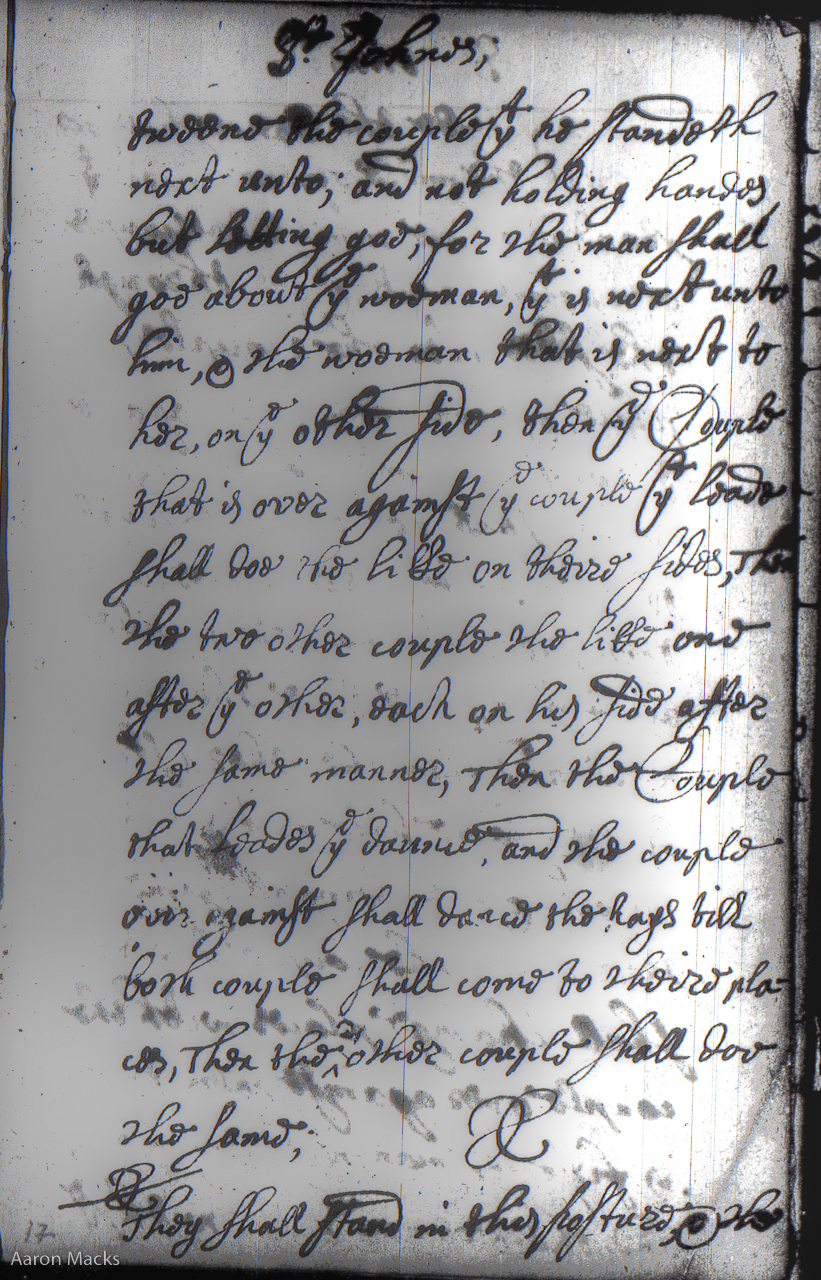 St. Johnes;
tweene the couple yt he standeth
next unto; and not holding handes
but letting goe, for the man shall
goe about ye woeman, yt is next unto
him, & the woeman that is next to
her, on ye other side, then ye Couple
that is over against ye couple yt leade
shall doe the like on theire sides, Then
the two other couple the like one
after ye other, each on his side after
the same manner, Then the Couple
that leades ye daunce, and the couple
over against shall dance the hays till
both couple shall come to theire pla-
ces, Then the 2 other couple shall doe
the same;
They shall stand in this posture, & the
17
Aaron Macks